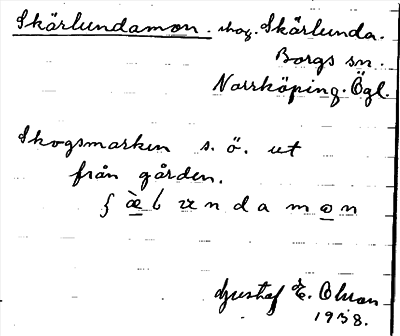 Skärlundamon. skog. Skärlunda.
Borgs sn.
Norrköping. Ögl.
Skogsmarken s. ö. ut
från gården.
Gustaf E. Olson
1938.